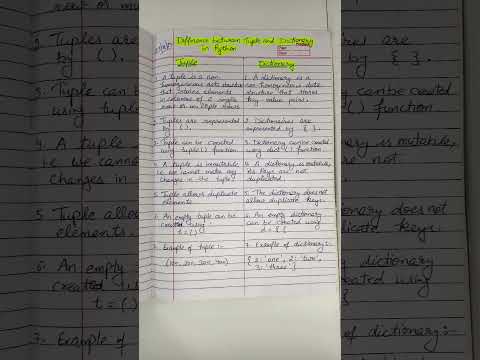 Difference between Tuple and Dictionary
in Python
Tuple
1. A tuple is a non
homogeneous data structure
that stores elements
in columns of a single
row or multiple rows.
2. Tuples are represented
by ( ).
3. Tuple can be created
using tuple() function
4. A tuple is immutable
i.e we cannot make any
changes in the tuple.
5. Tuple allows duplicate
elements
6. An empty tuple can be
created using
t = ( )
7. Example of tuple :-
Dictionary
1. A dictionary is a
non homogeneous data
structure that stores
key value pairs.
2. Dictionaries are
represented by { }.
3. Dictionary can be created
using dict() function.
4. A dictionary is mutable,
its keys are not
duplicated.
5. The dictionary does not
allow duplicate keys.
6. An empty dictionary
can be created using
d = { }
7. Example of dictionary :-
{ 1: 'one', 2: 'two',
3: 'three' }
2. Tuples are
by ( ).
3. Tuple can
using tuple
4. A tuple
i.e we cann
changes in
5. Tuple allow
elements.
6. An empty
created u
t = ( )
7- Example of
are
{ }.
created
function
is mutable,
not
does not
keys.
dictionary
using
of dictionary :-